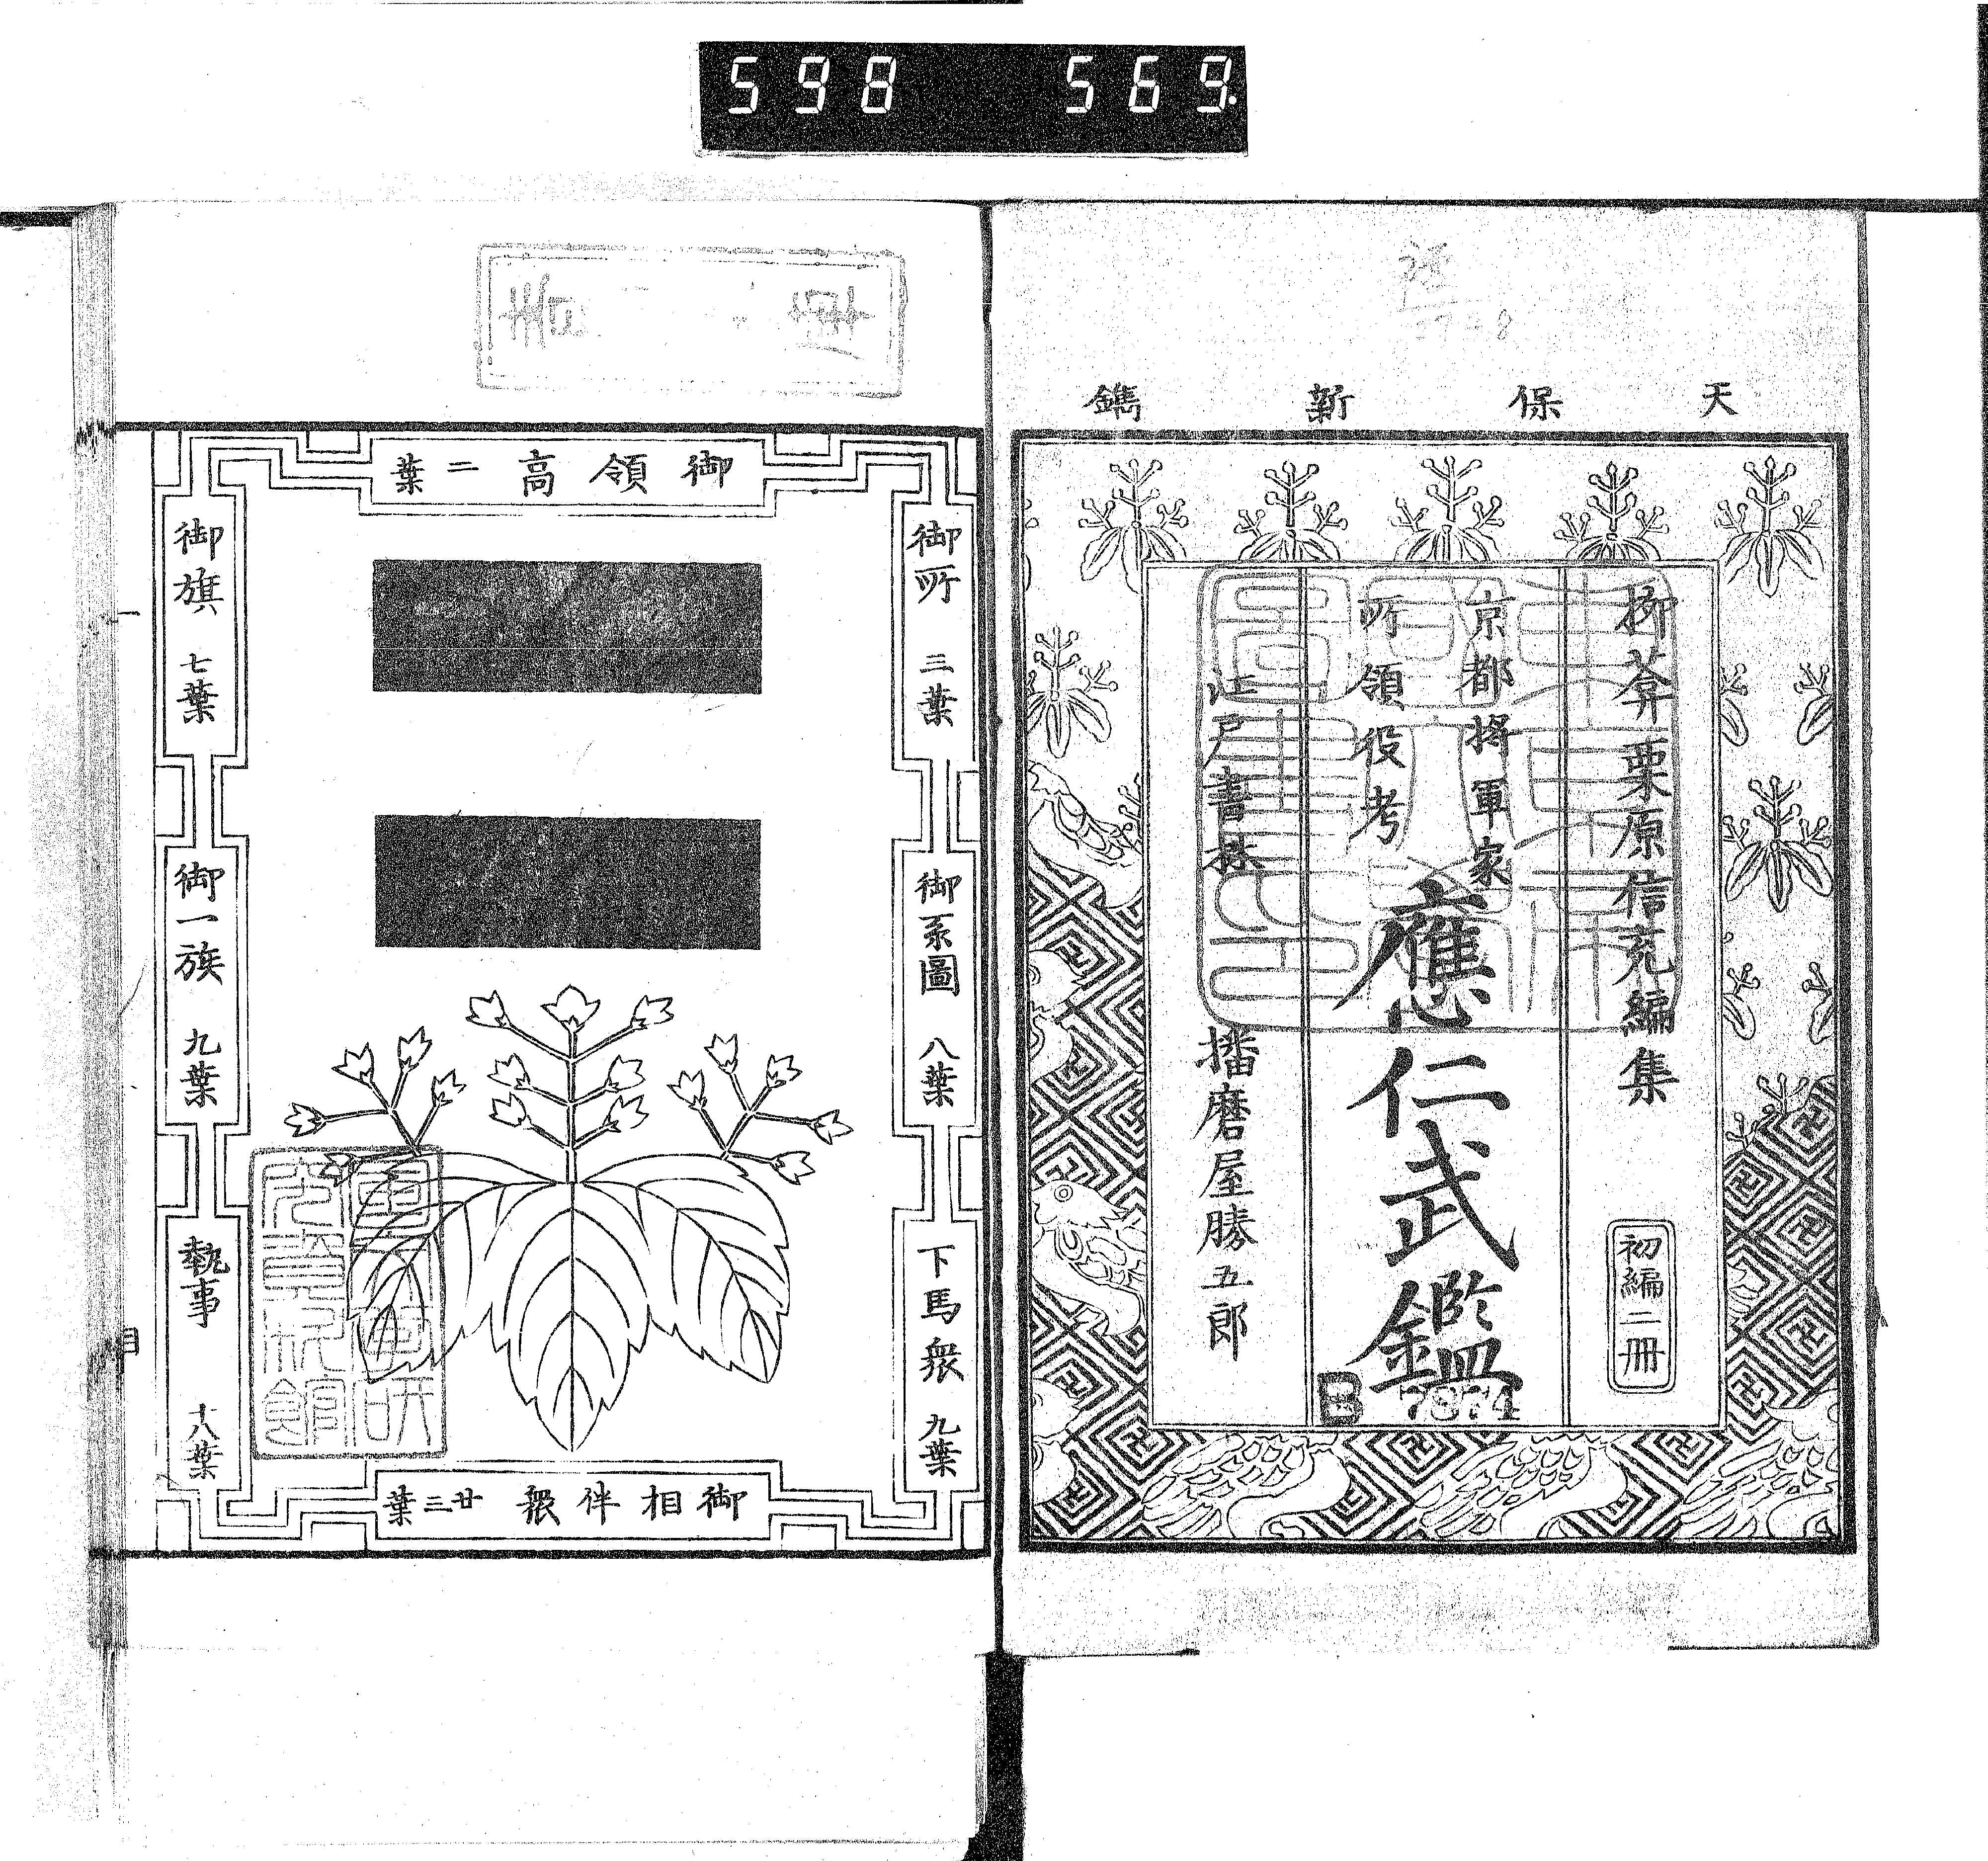 598 569.
天保新鐫
栁菴栗原信充編集
初編二冊
京都將軍家
所領役考
應仁武鑑
江戸書林 播磨屋勝五郎
B 7874
御領高 二葉
御所 三葉
御系圖 八葉
下馬衆 九葉
御旗 七葉
御一族 九葉
執事 十八葉
御相伴衆 廿三葉